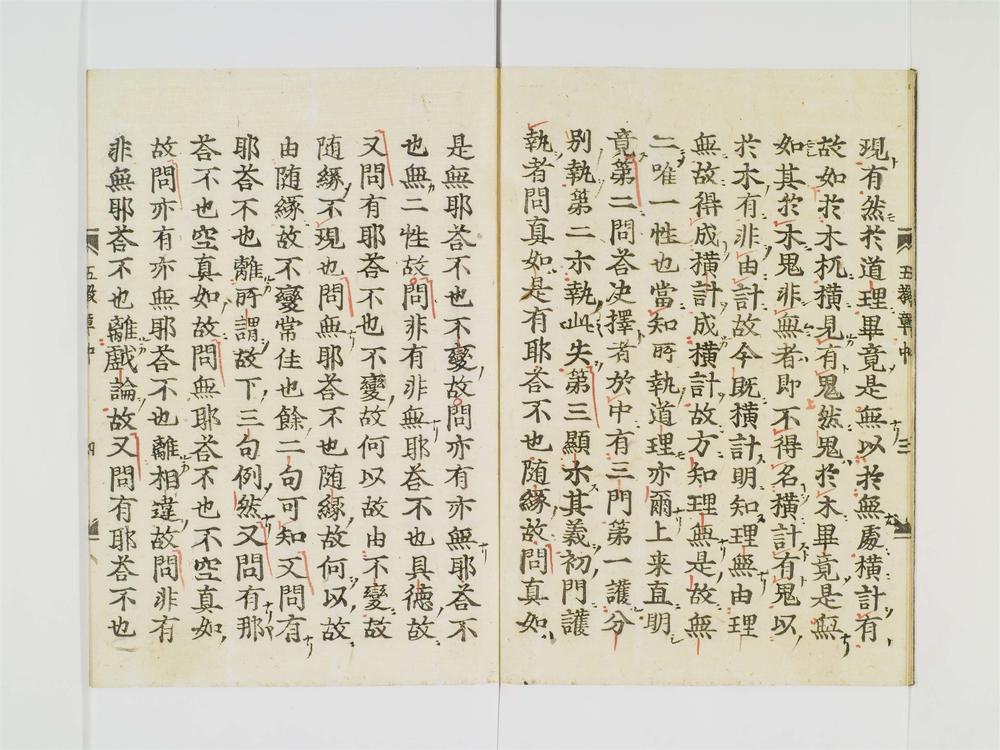 現有然於道理畢竟是無以於無處橫計有
故如於木杌橫見有鬼然鬼於木畢竟是無
如其於木鬼非無者即不得名橫計有鬼以
於木有非由計故今既橫計明知理無由理
無故得成橫計成橫計故方知理無是故無
二唯一性也當知所執道理亦爾上来直明
竟第二問荅决擇者於中有三門第一護分
別執第二示執此失第三顯示其義初門護
執者問真如是有耶荅不也随縁故問真如
是無耶荅不也不變故問亦有亦無耶荅不
也無二性故問非有非無耶荅不也具德故
又問有耶荅不也不變故何以故由不變故
随縁不現也問無耶荅不也随縁故何以故
由随縁故不變常住也餘二句可知又問有
耶荅不也離所謂故下三句例然又問有那
荅不也空真如故問無耶荅不也不空真如
故問亦有亦無耶荅不也離相違故問非有
非無耶荅不也離戯論故又問有耶荅不也
五教章中 三
五教章中 四